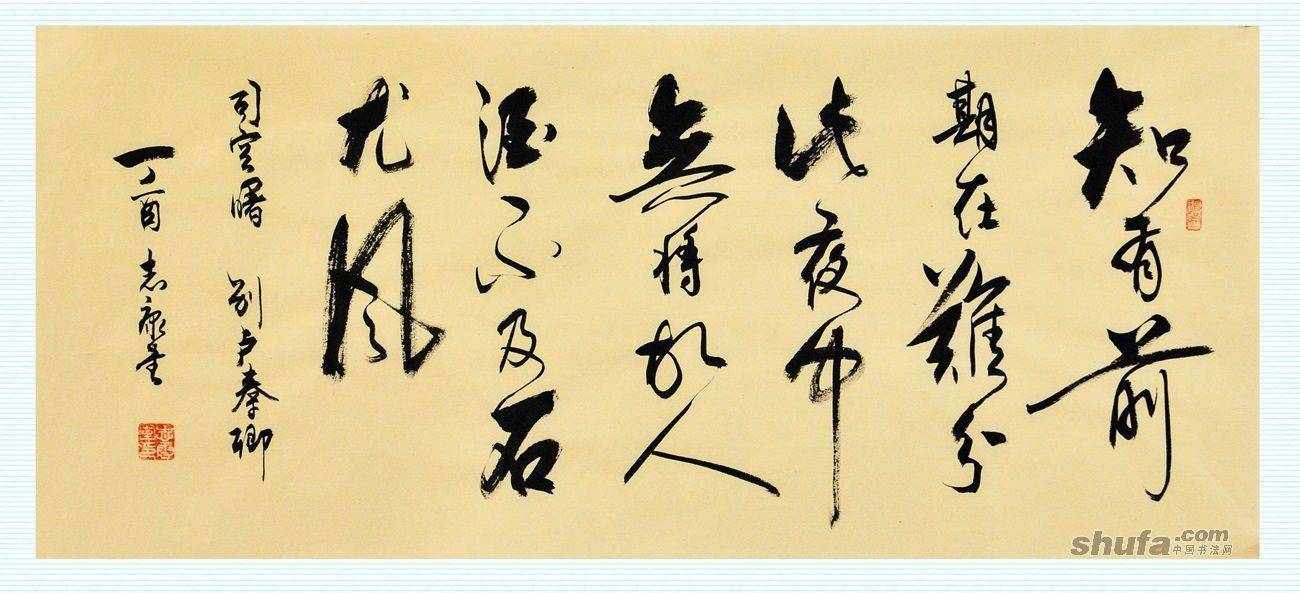 知有前
期在難分
此夜中
無將故人
酒不及石
尤風
司空曙 別卢秦卿
丁酉 志
shufa.com
中国书法网